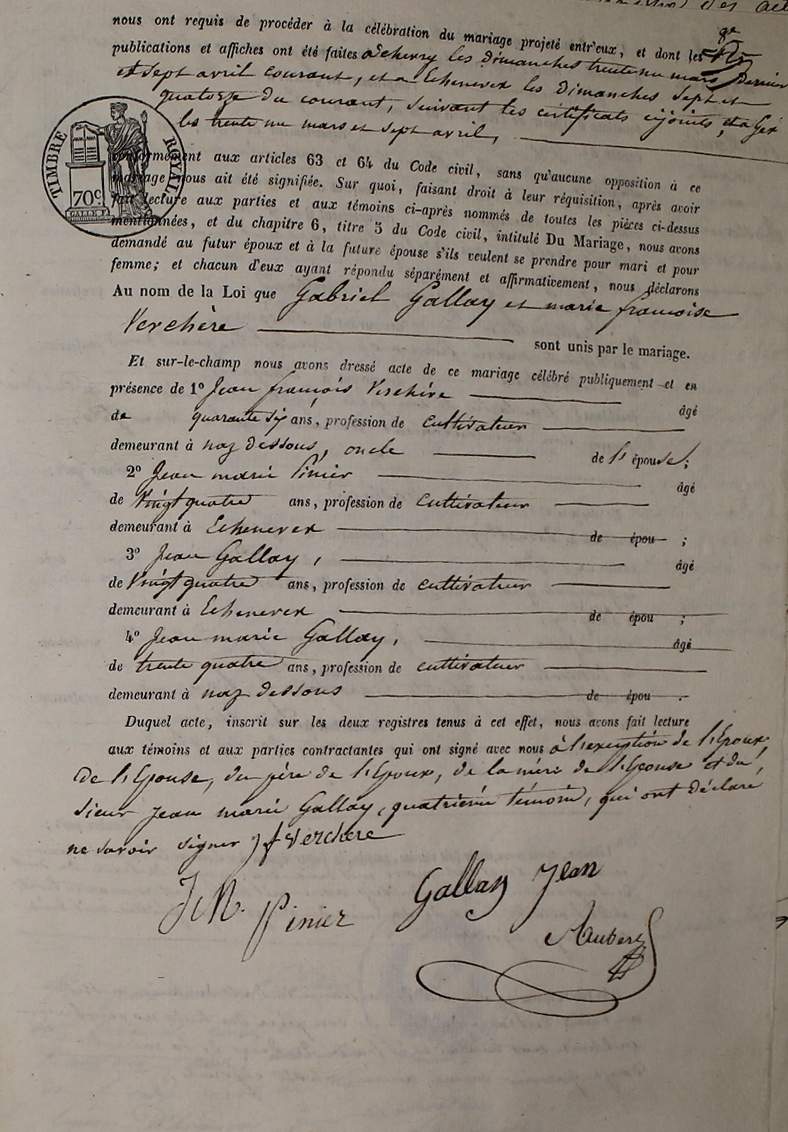 des act
nous ont requis de procéder à la célébration du mariage projeté entr'eux, et dont les
publications et affiches ont été faites a chevry les dimanches trente un mars dernier
et sept avril courant, et a Echenevex les dimanches sept et
quatorze du courant, suivant les certificats cijoints, et a Gex
les trente un mars et sept avril,
TIMBRE ROYAL
70c
conformément aux articles 63 et 64 du Code civil, sans qu'aucune opposition à ce
mariage nous ait été signifiée. Sur quoi, faisant droit à leur réquisition, après avoir
fait lecture aux parties et aux témoins ci-après nommés de toutes les pièces ci-dessus
mentionnées, et du chapitre 6, titre 5 du Code civil, intitulé Du Mariage, nous avons
demandé au futur époux et à la future épouse s'ils veulent se prendre pour mari et pour
femme; et chacun d'eux ayant répondu séparément et affirmativement, nous déclarons
Au nom de la Loi que Gabriel Gallay et marie francoise
Verchère sont unis par le mariage.
Et sur-le-champ nous avons dressé acte de ce mariage célébré publiquement et en
présence de 1º Jean françois Verchère âgé
de quarante six ans, profession de cultivateur
demeurant à naz dessous, oncle de l'épouse;
2º Jean marie Pinier âgé
de Vingt quatre ans, profession de cultivateur
demeurant à Echenevex de épou ;
3º Jean Gallay, âgé
de Vingt quatre ans, profession de cultivateur
demeurant à Echenevex de épou ;
4º Jean marie Gallay, âgé
de trente quatre ans, profession de cultivateur
demeurant à naz dessous de épou .
Duquel acte, inscrit sur les deux registres tenus à cet effet, nous avons fait lecture
aux témoins et aux parties contractantes qui ont signé avec nous à l'exception de l'Epoux,
de l'Epouse, du père de l'Epoux, de la mère de l'Epouse et du
sieur Jean marie Gallay, quatrième témoin, qui ont déclaré
ne savoir signer J f Verchere
J M. Pinier
Gallay Jean
Aubert